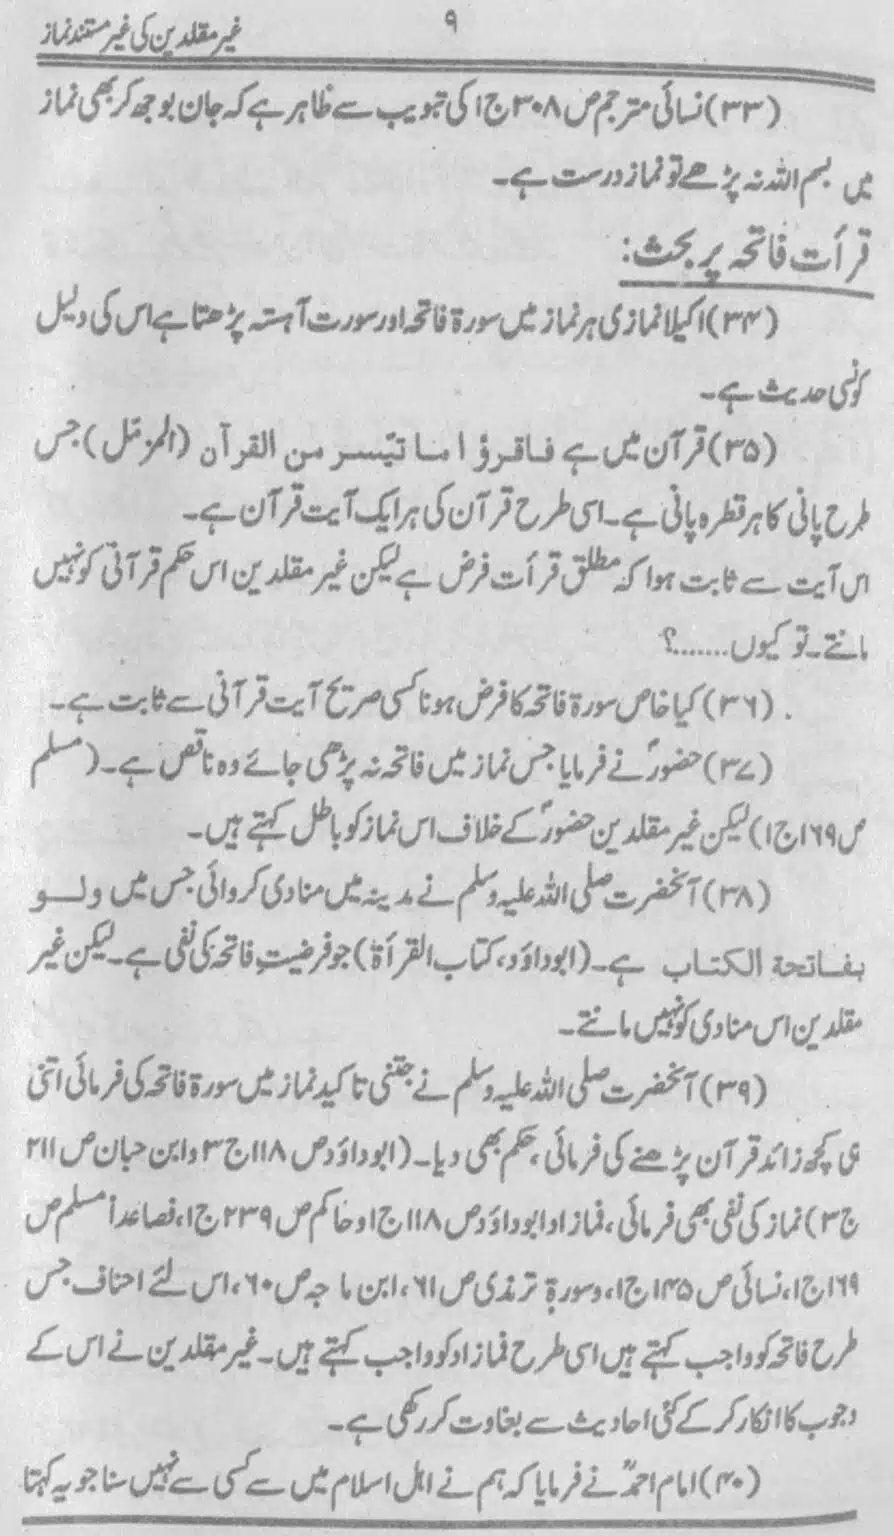 ۹
غیر مقلدین کی غیر مستند نماز
(۳۳) نسائی مترجم ص ۳۰۸ ج ۱ کی تبویب سے ظاہر ہے کہ جان بوجھ کر بھی نماز
میں بسم اللہ نہ پڑھے تو نماز درست ہے۔
قرأت فاتحہ پر بحث:
(۳۴) اکیلا نمازی ہر نماز میں سورۃ فاتحہ اور سورت آہستہ پڑھتا ہے اس کی دلیل
کونسی حدیث ہے۔
(۳۵) قرآن میں ہے فاقرؤا ما تیسر من القرآن (المزمل) جس
طرح پانی کا ہر قطرہ پانی ہے۔ اسی طرح قرآن کی ہر ایک آیت قرآن ہے۔
اس آیت سے ثابت ہوا کہ مطلق قرأت فرض ہے لیکن غیر مقلدین اس حکم قرآنی کو نہیں
مانتے۔ تو کیوں.......؟
(۳۶) کیا خاص سورۃ فاتحہ کا فرض ہونا کسی صریح آیت قرآنی سے ثابت ہے۔
(۳۷) حضورؐ نے فرمایا جس نماز میں فاتحہ نہ پڑھی جائے وہ ناقص ہے۔ (مسلم
ص ۱۶۹ ج ۱) لیکن غیر مقلدین حضورؐ کے خلاف اس نماز کو باطل کہتے ہیں۔
(۳۸) آنحضرت صلی اللہ علیہ وسلم نے مدینہ میں منادی کروائی جس میں ولو
بفاتحة الکتاب ہے۔ (ابوداؤد، کتاب القرأۃ) جو فرضیتِ فاتحہ کی نفی ہے۔ لیکن غیر
مقلدین اس منادی کو نہیں مانتے۔
(۳۹) آنحضرت صلی اللہ علیہ وسلم نے جتنی تاکید نماز میں سورۃ فاتحہ کی فرمائی اتنی
ہی کچھ زائد قرآن پڑھنے کی فرمائی، حکم بھی دیا۔ (ابوداؤد ص ۱۱۸ ج ۳ وابن حبان ص ۲۱۱
ج ۳) نماز کی نفی بھی فرمائی، فمازاد ابوداؤد ص ۱۱۸ ج ۱ وحاکم ص ۲۳۹ ج ۱، فصاعداً مسلم ص
۱۶۹ ج ۱، نسائی ص ۱۴۵ ج ۱، وسورۃ ترمذی ص ۶۱، ابن ماجہ ص ۶۰، اس لئے احناف جس
طرح فاتحہ کو واجب کہتے ہیں اسی طرح فمازاد کو واجب کہتے ہیں۔ غیر مقلدین نے اس کے
وجوب کا انکار کر کے کئی احادیث سے بغاوت کر رکھی ہے۔
(۴۰) امام احمدؒ نے فرمایا کہ ہم نے اہل اسلام میں سے کسی سے نہیں سنا جو یہ کہتا